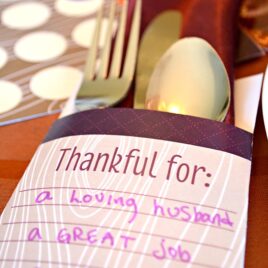 Thankful for:
a loving husband
a GREAT job